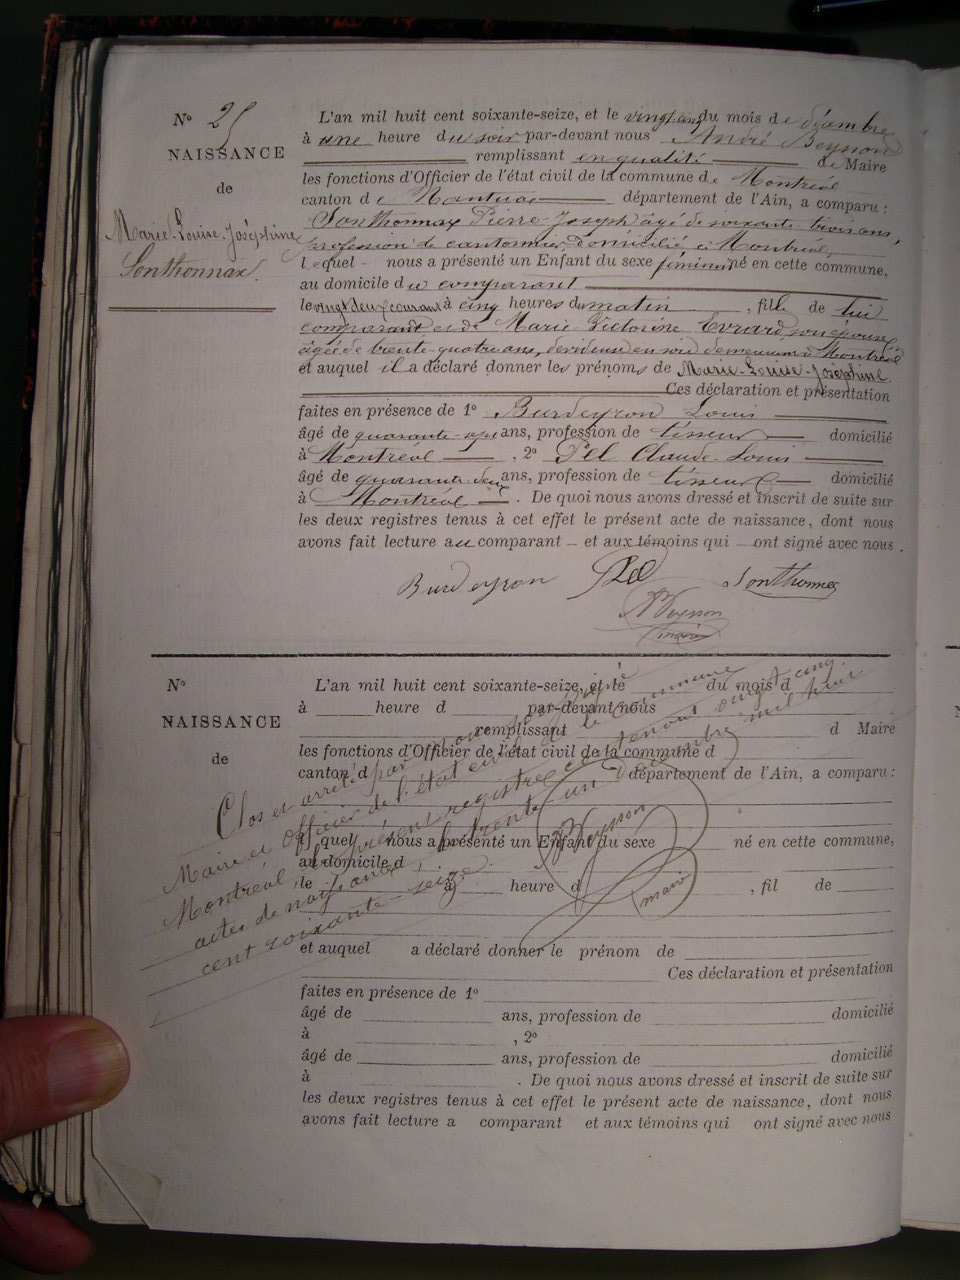 N° 25
NAISSANCE
de
Marie-Louise-Joséphine
Sonthonnax
L'an mil huit cent soixante-seize, et le vingt cinq du mois de décembre
à une heure du soir par-devant nous André Beysson
remplissant en qualité de Maire
les fonctions d'Officier de l'état civil de la commune de Montréal
canton de Nantua département de l'Ain, a comparu :
Sonthonnax Pierre-Joseph âgé de soixante trois ans,
profession de cantonnier domicilié à Montréal,
lequel nous a présenté un Enfant du sexe féminin né en cette commune,
au domicile du comparant
le vingt deux courant à cinq heures du matin , fille de lui
comparant et de Marie Victorine Evrard, son épouse,
âgée de trente-quatre ans, dévideuse en soie demeurant à Montréal
et auquel il a déclaré donner les prénoms de Marie-Louise-Joséphine.
Ces déclaration et présentation
faites en présence de 1° Burdeyron Louis
âgé de quarante-sept ans, profession de tisseur domicilié
à Montréal , 2° Pel Claude-Louis
âgé de quarante-deux ans, profession de tisseur domicilié
à Montréal . De quoi nous avons dressé et inscrit de suite sur
les deux registres tenus à cet effet le présent acte de naissance, dont nous
avons fait lecture au comparant et aux témoins qui ont signé avec nous.
Burdeyron Pel Sonthonnax
Beysson
maire
N°
NAISSANCE
de
L'an mil huit cent soixante-seize, et le du mois d
à heure d par-devant nous
remplissant d Maire
les fonctions d'Officier de l'état civil de la commune d
canton d département de l'Ain, a comparu :
l quel nous a présenté un Enfant du sexe né en cette commune,
au domicile d
le à heure d , fil de
et auquel a déclaré donner le prénom de
Ces déclaration et présentation
faites en présence de 1°
âgé de ans, profession de domicilié
à , 2°
âgé de ans, profession de domicilié
à . De quoi nous avons dressé et inscrit de suite sur
les deux registres tenus à cet effet le présent acte de naissance, dont nous
avons fait lecture a comparant et aux témoins qui ont signé avec nous
Clos et arrêté par nous
Maire et officier de l'état civil de la commune
Montréal, le présent registre contenant vingt cinq
actes de naissance, le trente un décembre mil huit
cent soixante-seize.
Beysson
maire